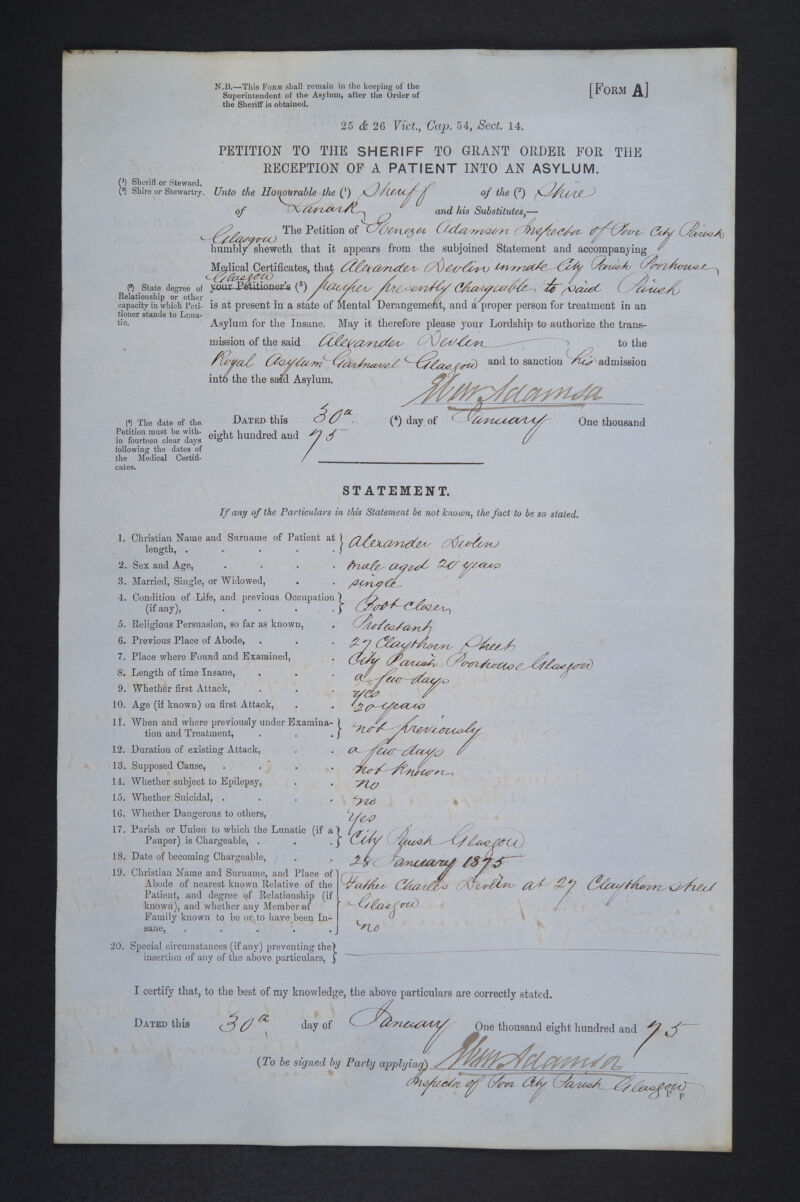 N.B.—This Form shall remain in the keeping of the
Superintendent of the Asylum, after the Order of
the Sheriff is obtained.
[Form A]
25 & 26 Vict., Cap. 54, Sect. 14.
PETITION TO THE SHERIFF TO GRANT ORDER FOR THE
RECEPTION OF A PATIENT INTO AN ASYLUM.
(¹) Sheriff or Steward.
(²) Shire or Stewartry.
Unto the Honourable the (¹) Sheriff of the (²) Shire
of Lanark, and his Substitutes,—
The Petition of Ebenezer Adamson Inspector of Poor City Parish
Glasgow
humbly sheweth that it appears from the subjoined Statement and accompanying
Medical Certificates, that Alexander Devlin inmate City Parish Poorhouse,
Glasgow
(³) State degree of
Relationship or other
capacity in which Peti-
tioner stands to Luna-
tic.
your Petitioner's (³) pauper presently chargeable to said Parish
is at present in a state of Mental Derangement, and a proper person for treatment in an
Asylum for the Insane. May it therefore please your Lordship to authorize the trans-
mission of the said Alexander Devlin to the
Royal Asylum Gartnavel Glasgow and to sanction his admission
into the the said Asylum.
Eben Adamson
(⁴) The date of the
Petition must be with-
in fourteen clear days
following the dates of
the Medical Certifi-
cates.
Dated this 30th (⁴) day of January One thousand
eight hundred and 75
STATEMENT.
If any of the Particulars in this Statement be not known, the fact to be so stated.
1. Christian Name and Surname of Patient at length, . . . . . Alexander Devlin
2. Sex and Age, . . . . male aged 20 years
3. Married, Single, or Widowed, . . single
4. Condition of Life, and previous Occupation (if any), . . . . Boot closer
5. Religious Persuasion, so far as known, . Protestant
6. Previous Place of Abode, . . . 27 Claythorn Street
7. Place where Found and Examined, . City Parish Poorhouse Glasgow
8. Length of time Insane, . . . a few days
9. Whether first Attack, . . . yes
10. Age (if known) on first Attack, . . 20 years
11. When and where previously under Examina-tion and Treatment, . . . . not previously
12. Duration of existing Attack, . . a few days
13. Supposed Cause, . . . . not known
14. Whether subject to Epilepsy, . . no
15. Whether Suicidal, . . . . no
16. Whether Dangerous to others, . . Yes
17. Parish or Union to which the Lunatic (if a Pauper) is Chargeable, . . . . City Parish Glasgow
18. Date of becoming Chargeable, . . 28 January 1875
19. Christian Name and Surname, and Place of
Abode of nearest known Relative of the
Patient, and degree of Relationship (if
known), and whether any Member of
Family known to be or to have been In-
sane, . . . . . .
Father Charles Devlin at 27 Claythorn Street
Glasgow
no
20. Special circumstances (if any) preventing the
insertion of any of the above particulars,
I certify that, to the best of my knowledge, the above particulars are correctly stated.
Dated this 30th day of January One thousand eight hundred and 75
(To be signed by Party applying) Eben Adamson
Inspector of Poor City Parish Glasgow
P P